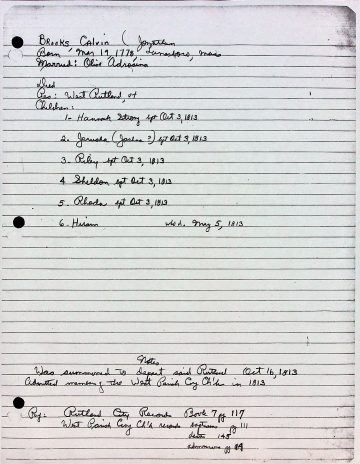 BROOKS CALVIN (Jonathan
Born Mar 19, 1778 Lanesboro, Mass
Married: Olive
Died
Res: West Rutland, Vt
Children:
1- Hannah Strong bpt Oct 3, 1813
2. (Joshua?) bpt Oct 3, 1813
3. Riley bpt Oct 3, 1813
4 Sheldon bpt Oct 3, 1813
5. Rhoda bpt Oct 3, 1813
6. Hiram d. May 5, 1813
Notes
Was summoned to depart said Rutland Oct 16, 1813
Admitted member of the West Parish Cong Ch'h in 1813
Rutland City Records Book 7 pg 117
West Parish Cong Ch'h records baptisms pg 111
deaths 145
admissions pg 84